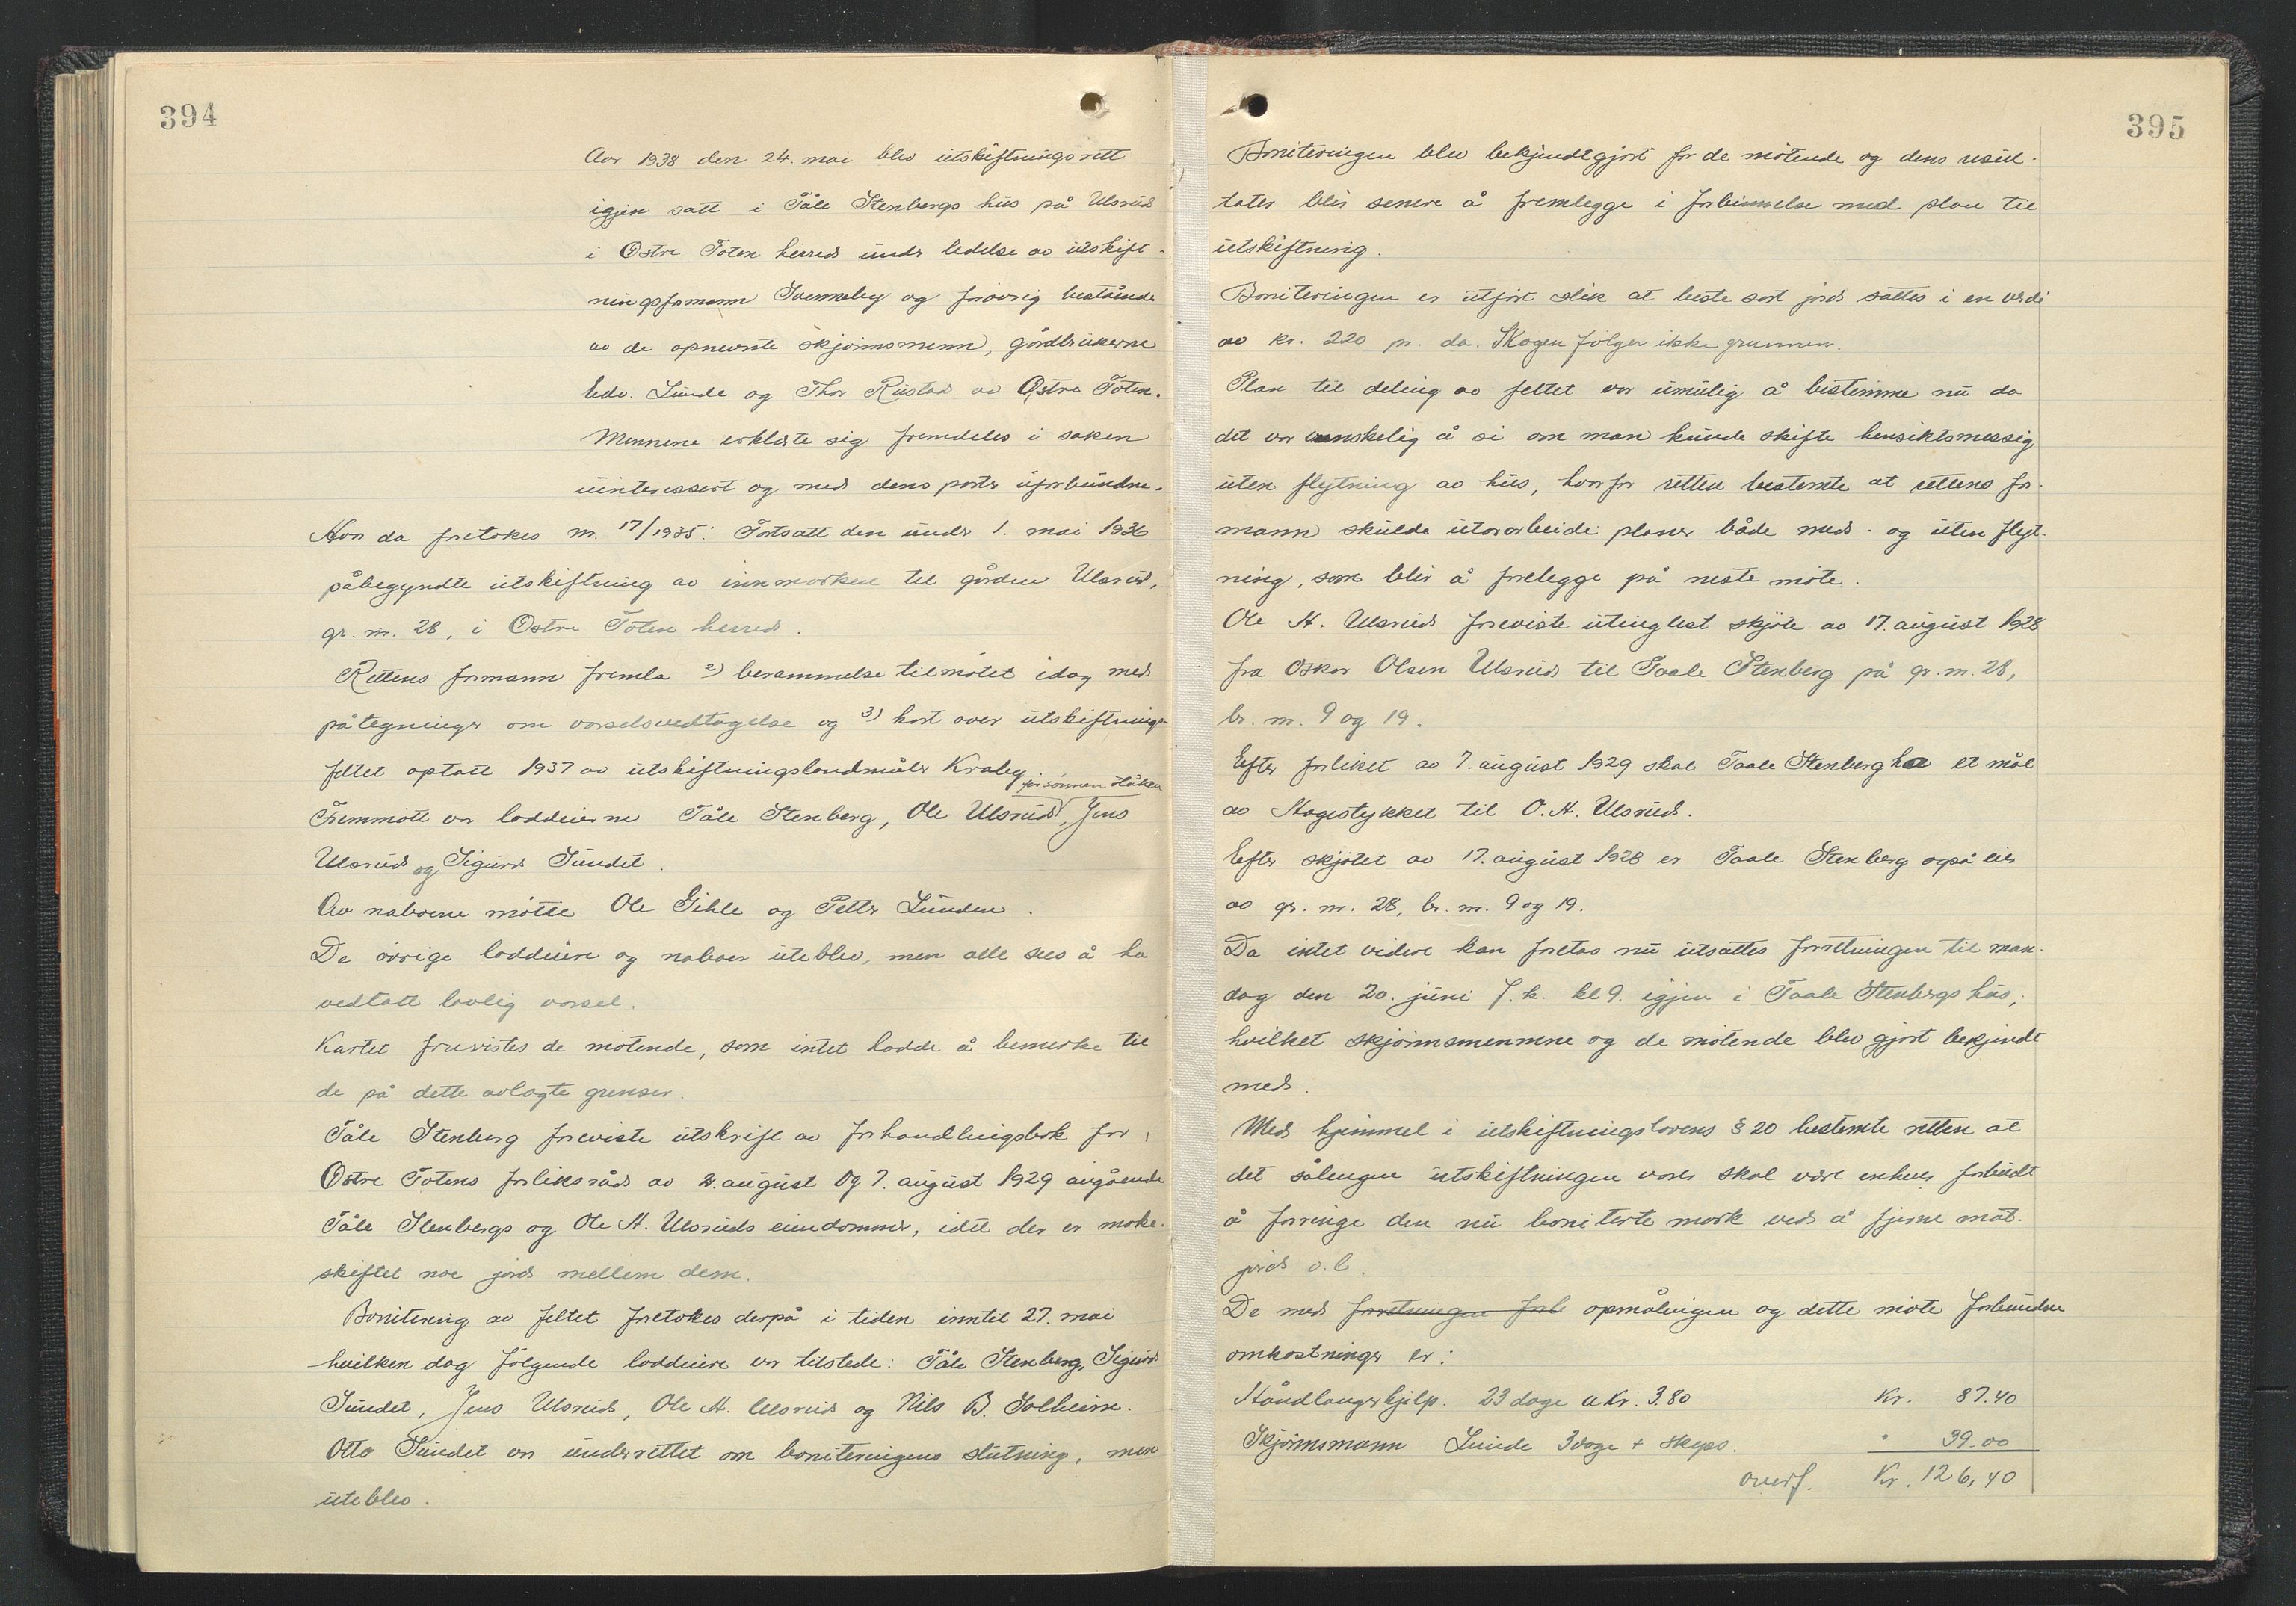 394
Aar 1938 den 24. mai blev utskiftningsrett
igjen satt i Tåle Stenbergs hus på Ulsrud
i Østre Toten herred under ledelse av utskift-
ningsformann Svenneby og forøvrig bestående
av de opnevnte skjønnsmenn, gårdbrukerne
Edv. Lunde og Thor Rustad av Østre Toten.
Mennene erklærte sig fremdeles i saken
uinteressert og med dens parter uforbundne.
Hvor da foretokes nr. 17/1935: Fortsatt den under 1. mai 1936
påbegyndte utskiftning av innmarken til gården Ulsrud,
gr. nr. 28, i Østre Toten herred.
Rettens formann fremla 2) berammelse til møtet idag med
påtegninger om varselsvedtagelse og 3) kart over utskiftnings-
feltet optatt 1937 av utskiftningslandmåler Kraby
for sønnen Håkon
Fremmøtt var loddeierne Tåle Stenberg, Ole Ulsrud, Jens
Ulsrud og Sigurd Sundet.
Av naboene møtte Ole Gihle og Petter Lunden.
De øvrige loddeiere og naboer uteblev, men alle sees å ha
vedtatt lovlig varsel.
Kartet forevistes de møtende, som intet hadde å bemerke til
de på dette avlagte grenser.
Tåle Stenberg foreviste utskrift av forhandlingsbok for
Østre Totens forliksråd av 2. august og 7. august 1929 angående
Tåle Stenbergs og Ole H. Ulsruds eiendommer, idet der er make-
skiftet noe jord mellem dem.
Bonitering av feltet foretokes derpå i tiden inntil 27. mai
hvilken dag følgende loddeiere var tilstede: Tåle Stenberg, Sigurd
Sundet, Jens Ulsrud, Ole H. Ulsrud og Nils B. Solheim.
Otto Sundet var underrettet om boniteringens slutning, men
uteblev.
395
Boniteringen blev bekjendtgjort for de møtende og dens resul-
tater blir senere å fremlegge i forbinnelse med plan til
utskiftning.
Boniteringen er utført slik at beste sort jord sattes i en verdi
av kr. 220 pr. da. Skogen følger ikke grunnen.
Plan til deling av feltet var umulig å bestemme nu da
det var vanskelig å si om man kunde skifte hensiktsmessig
uten flytning av hus, hvorfor retten bestemte at rettens for-
mann skulde utarbeide planer både med- og uten flyt-
ning, som blir å forelegge på neste møte.
Ole H. Ulsrud foreviste utinglest skjøte av 17. august 1928
fra Oskar Olsen Ulsrud til Taale Stenberg på gr. nr. 28,
br. nr. 9 og 19.
Efter forliket av 7. august 1929 skal Taale Stenberg ha et mål
av Hagestykket til O. H. Ulsrud.
Efter skjøtet av 17. august 1928 er Taale Stenberg også eier
av gr. nr. 28, br. nr. 9 og 19.
Da intet videre kan foretas nu utsattes forretningen til man-
dag den 20. juni f. k. kl 9. igjen i Taale Stenbergs hus,
hvilket skjønnsmennene og de møtende blev gjort bekjendt
med.
Med hjemmel i utskiftningslovens § 20 bestemte retten at
det sålengen utskiftningen varer skal være enhver forbudt
å forringe den nu boniterte mark ved å fjerne mat-
jord o.l.
De med forretningen forb opmålingen og dette møte forbundne
omkostninger er:
Håndlangerhjelp. 23 dage a kr. 3.80 Kr. 87.40
Skjønnsmann Lunde 3 dage + skyss. " 39.00
overf. Kr. 126,40